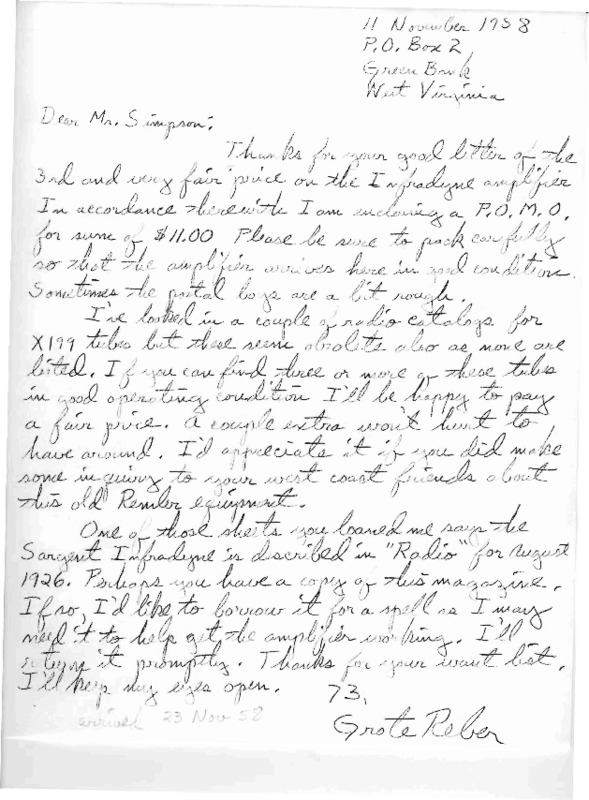 11 November 1958
P.O. Box 2
Green Bank
West Virginia
Dear Mr. Simpson:
Thanks for your good letter of the
3rd and very fair price on the Infradyne amplifier
In accordance therewith I am enclosing a P.O.M.O.
for sum of $11.00 Please be sure to pack carefully
so that the amplifier arrives here in good condition.
Sometimes the postal boys are a bit rough.
I've looked in a couple of radio catalogs for
X199 tubes but these seem obsolete also as none are
listed. If you can find three or more of these tubes
in good operating condition I'll be happy to pay
a fair price. A couple extra won't hurt to
have around. I'd appreciate it if you did make
some inquiry to your west coast friends about
this old Remler equipment.
One of those sheets you loaned me says the
Sargent Infradyne is discribed in "Radio" for August
1926. Perhaps you have a copy of this magazine.
If so, I'd like to borrow it for a spell as I may
need it to help get the amplifier working. I'll
return it promptly. Thanks for your want list.
I'll keep my eyes open.
73,
Grote Reber
arrived 23 Nov 58